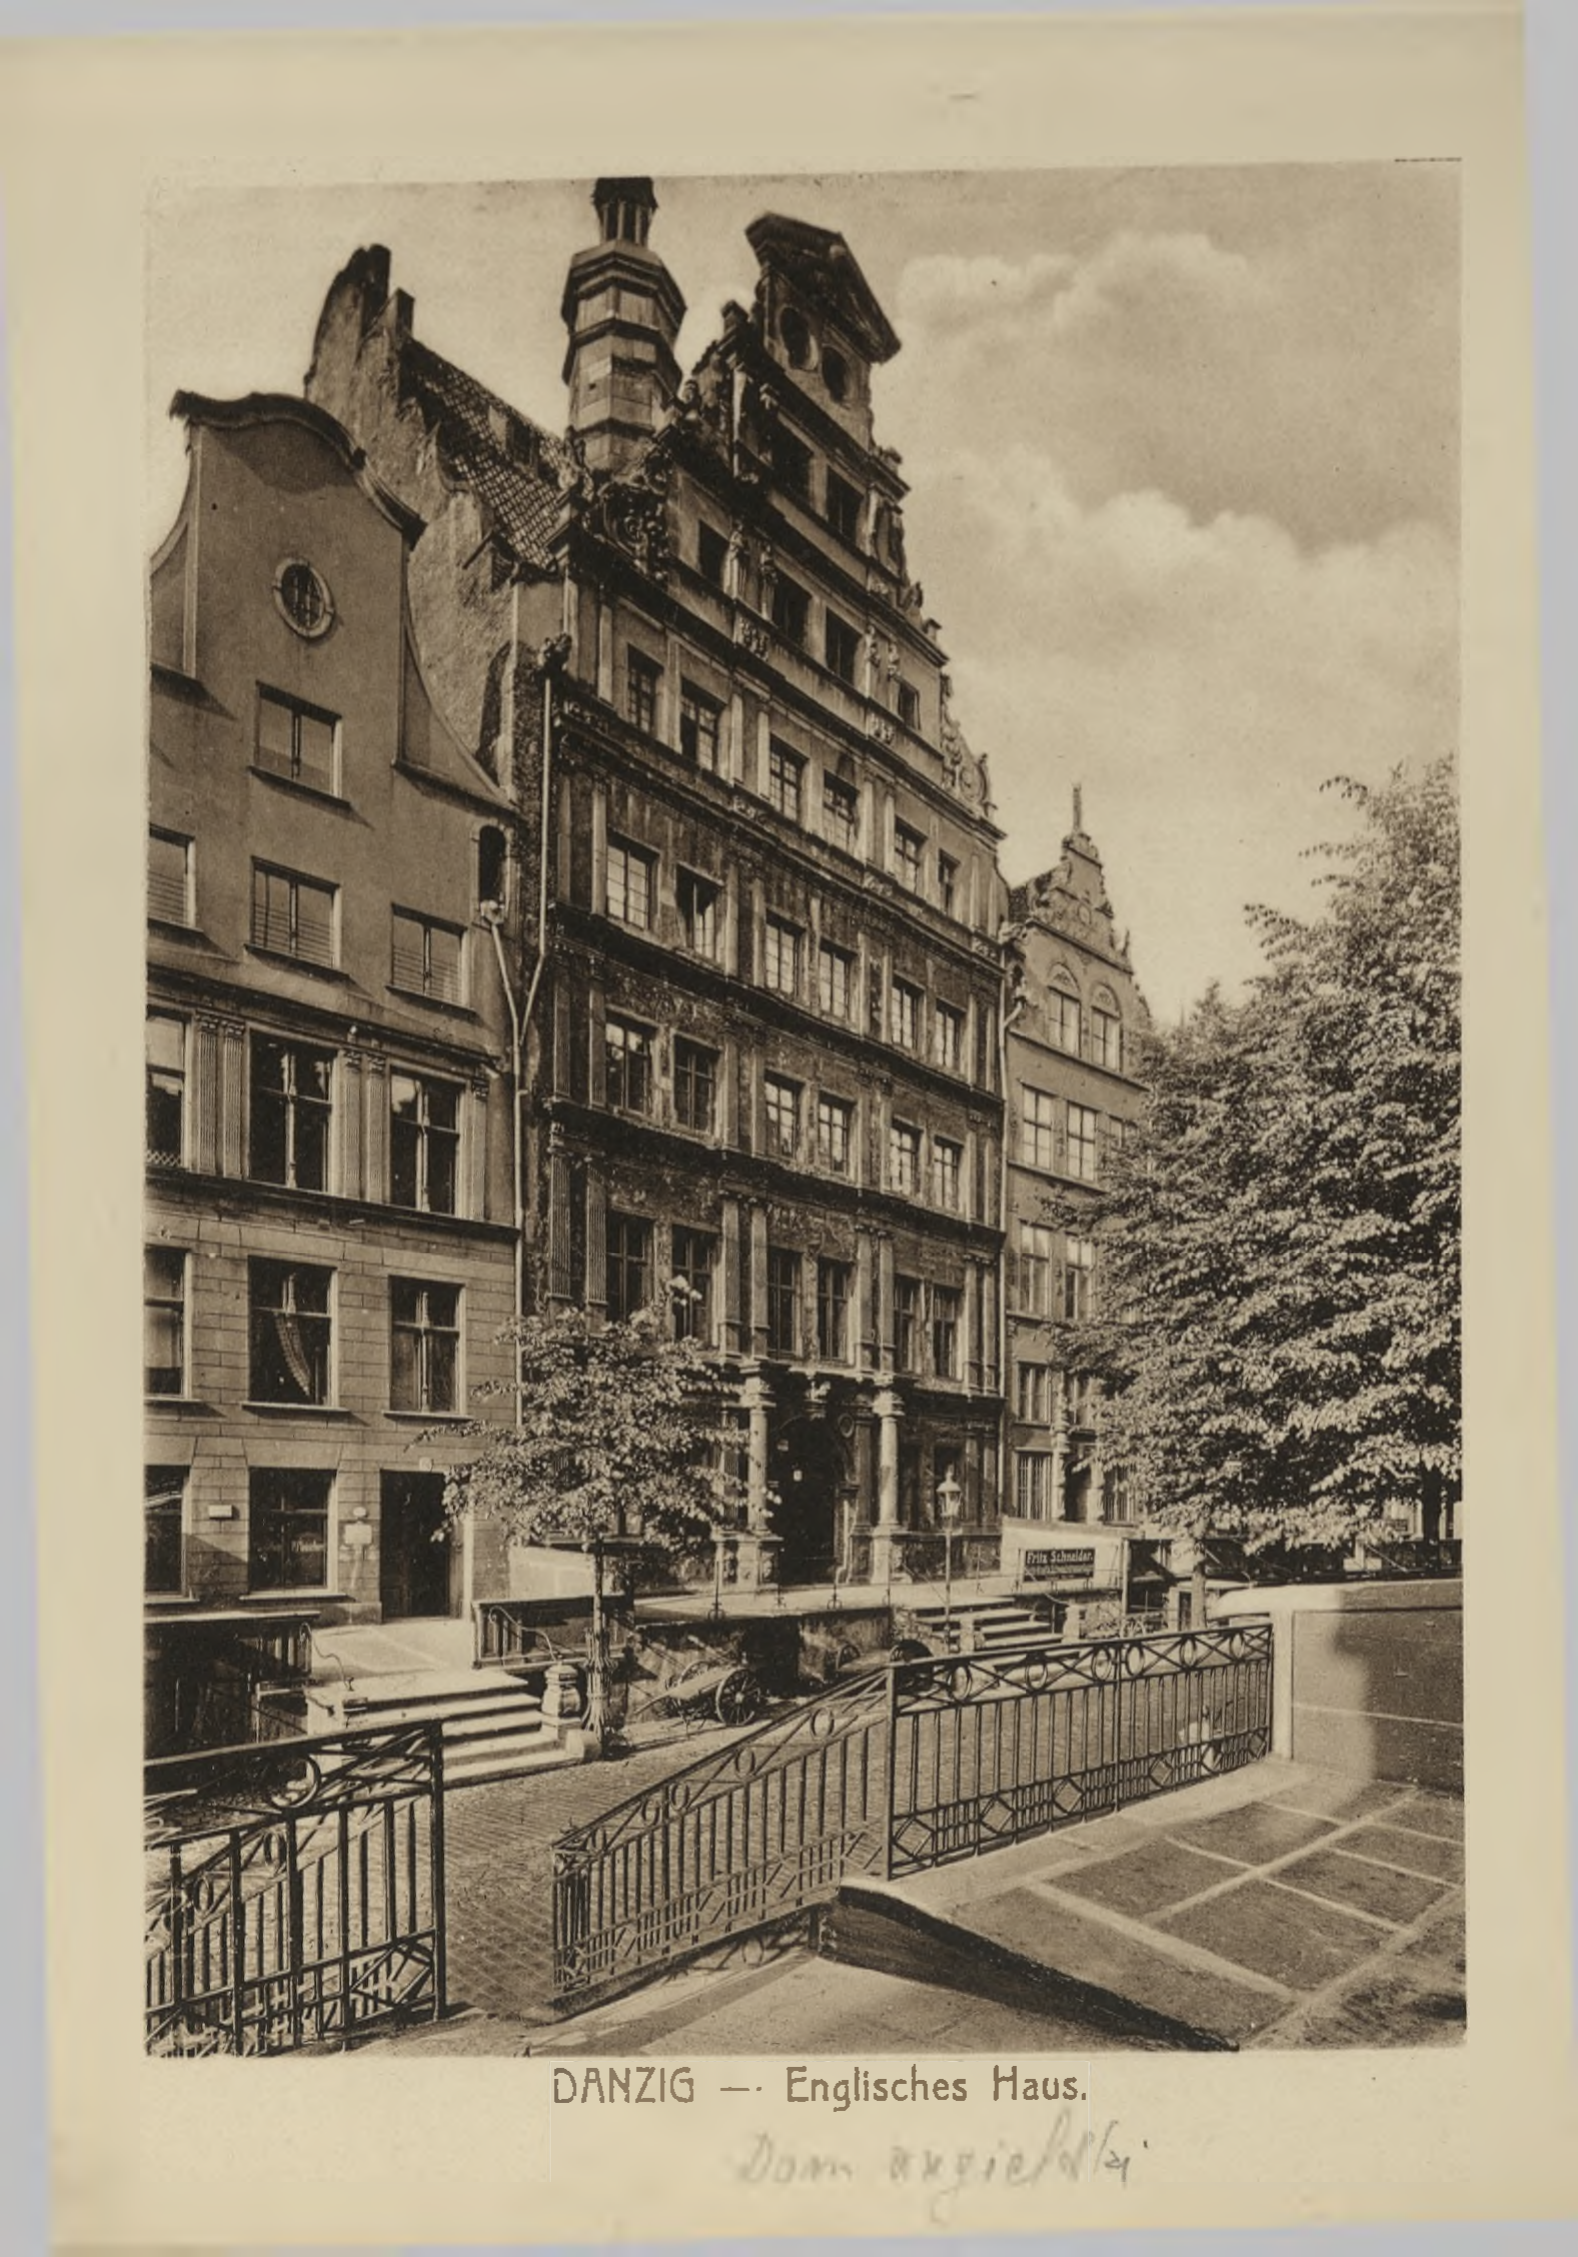 Fritz Schneider.
DANZIG —· Englisches Haus.
Dom angielski